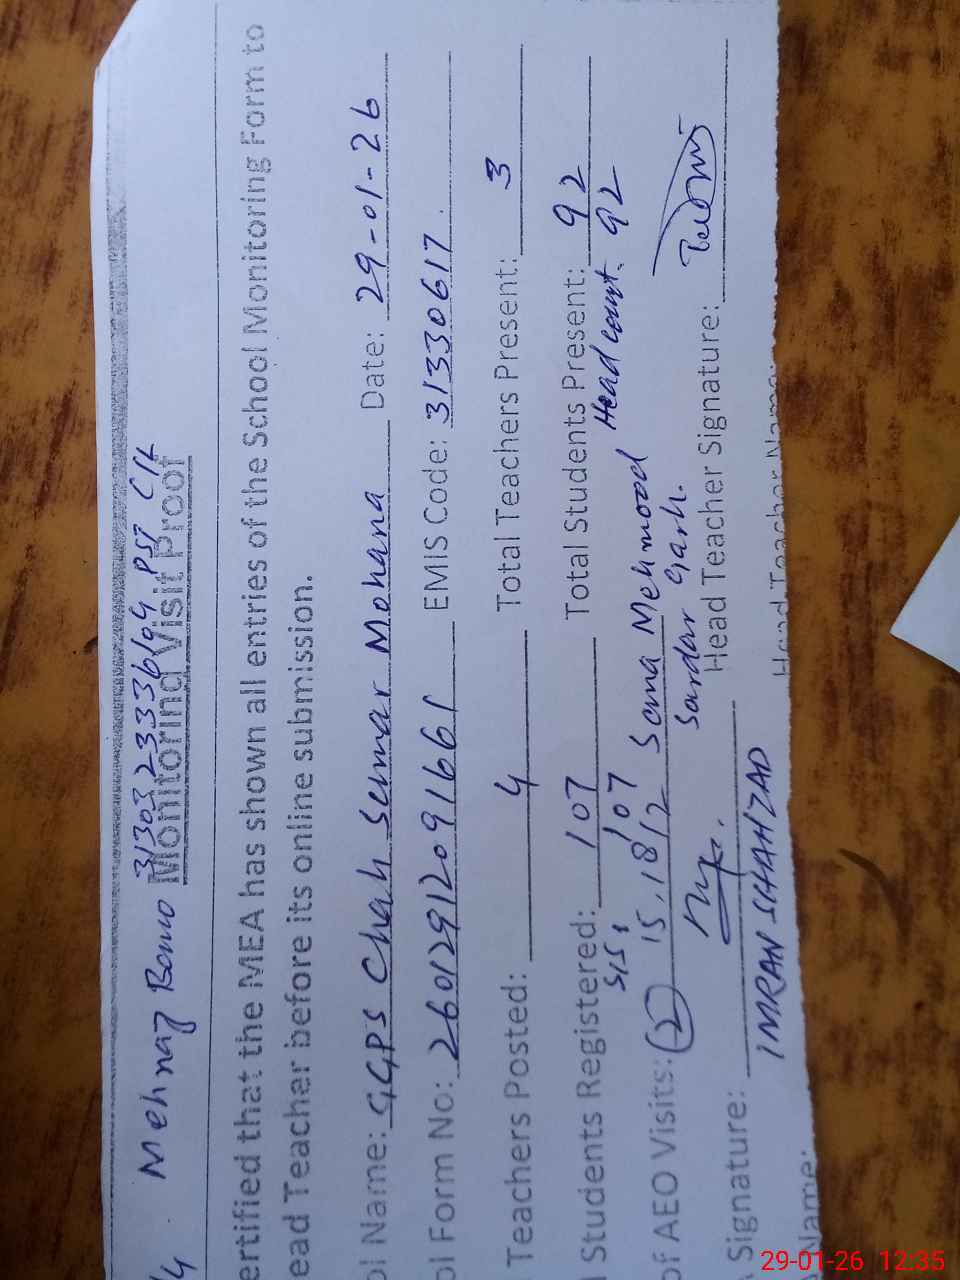 Mehnaz Bano 31303 2333619 4 PST C/L
Monitoring Visit Proof
ertified that the MEA has shown all entries of the School Monitoring Form to
ead Teacher before its online submission.
ol Name: GGPS Chah Semar Mohana Date: 29-01-26
ol Form No: 26012912091661 EMIS Code: 31330617
Teachers Posted: 4 Total Teachers Present: 3
l Students Registered: 107 Total Students Present: 92
SIS, 107 Head count. 92
of AEO Visits: (2) 15, 18/2 Soma Mehmood
Sardar Garh.
Signature: Head Teacher Signature:
IMRAN SHAHZAD
Name: Head Teacher Name:
29-01-26 12:35